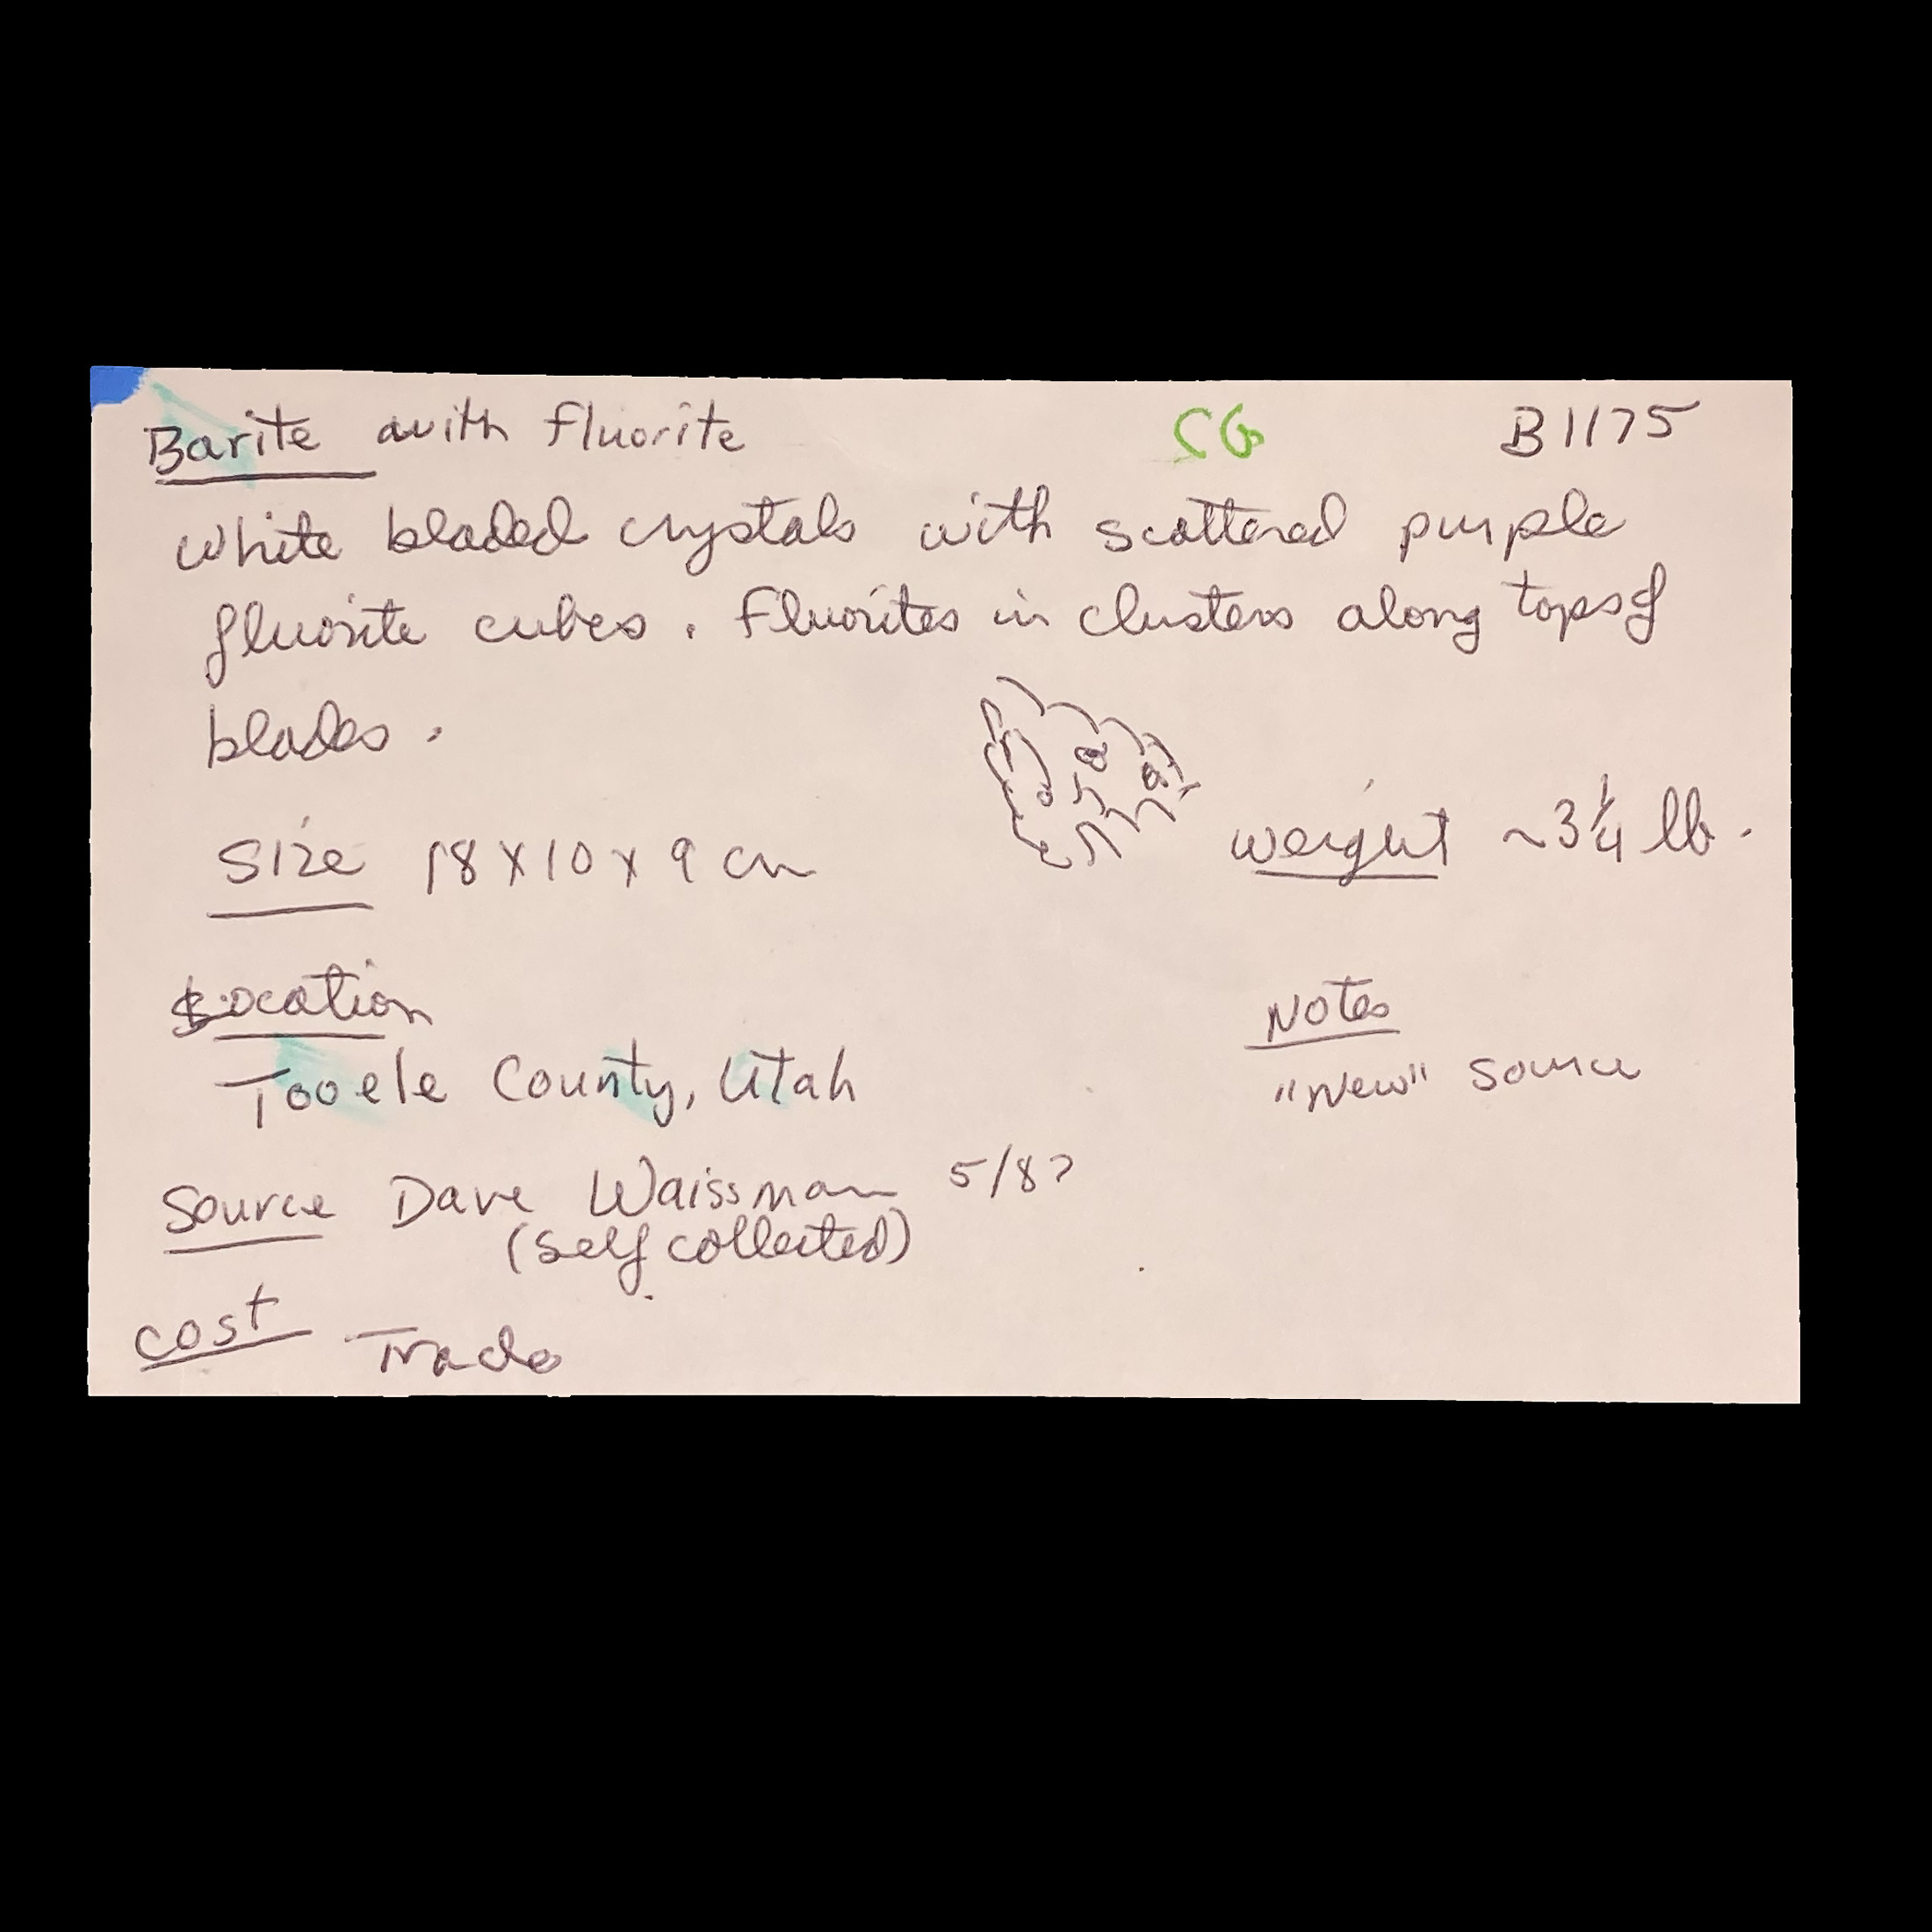 Barite with fluorite CG B1175
White bladed crystals with scattered purple
fluorite cubes. Fluorites in clusters along tops of
blades.
Size 18 x 10 x 9 cm weight ~3 1/4 lb.
Location Notes
Tooele County, Utah "New" source
Source Dave Waissman 5/87
(self collected)
Cost Trade